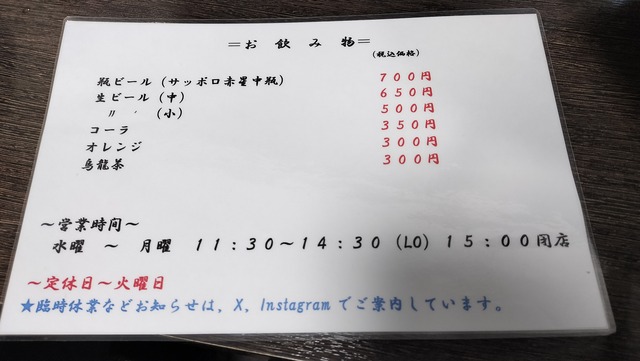 ＝お飲み物＝
(税込価格)
瓶ビール（サッポロ赤星中瓶） ７００円
生ビール（中） ６５０円
〃　（小） ５００円
コーラ ３５０円
オレンジ ３００円
烏龍茶 ３００円
～営業時間～
水曜 ～ 月曜 １１：３０～１４：３０（LO）１５：００閉店
～定休日～火曜日
★臨時休業などお知らせは，X，Instagramでご案内しています。